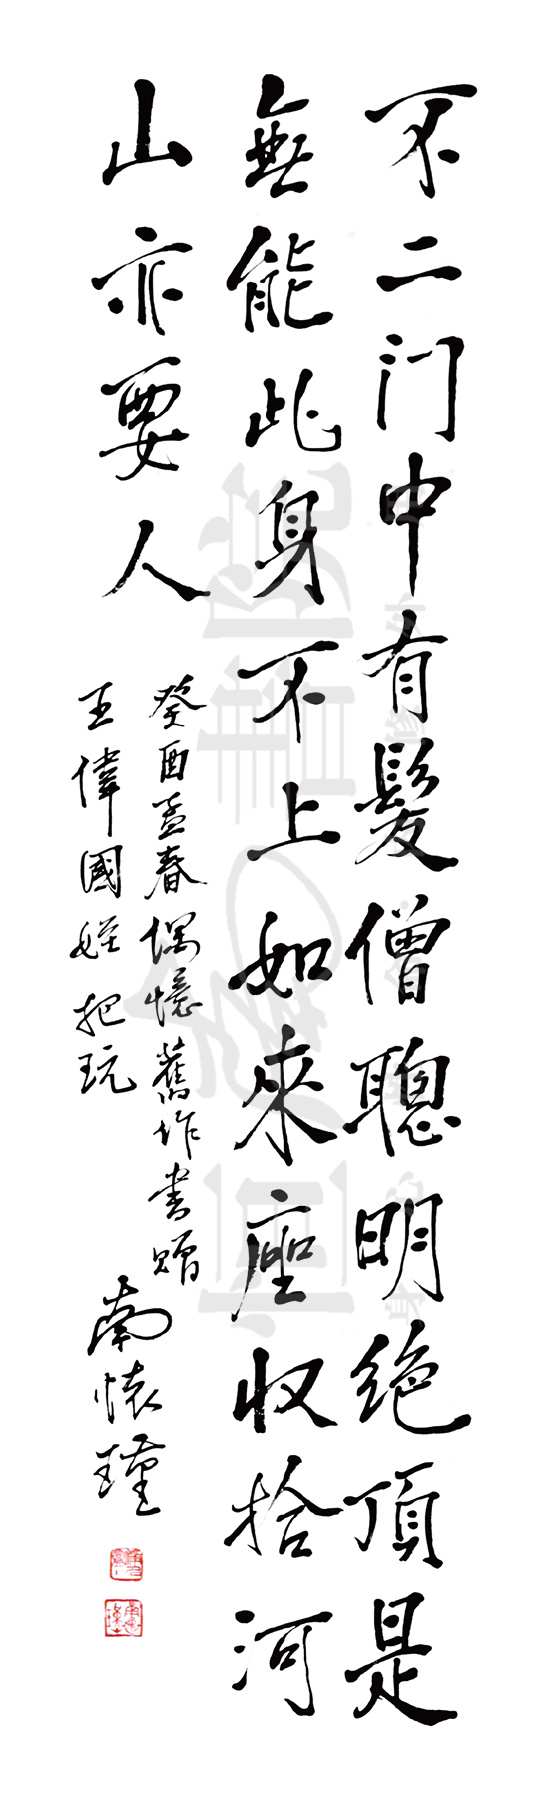 不二门中有髮僧聰明绝頂是
無能此身不上如來座收拾河
山亦要人
癸酉孟春偶憶舊作書贈
王偉國姪把玩
南懷瑾